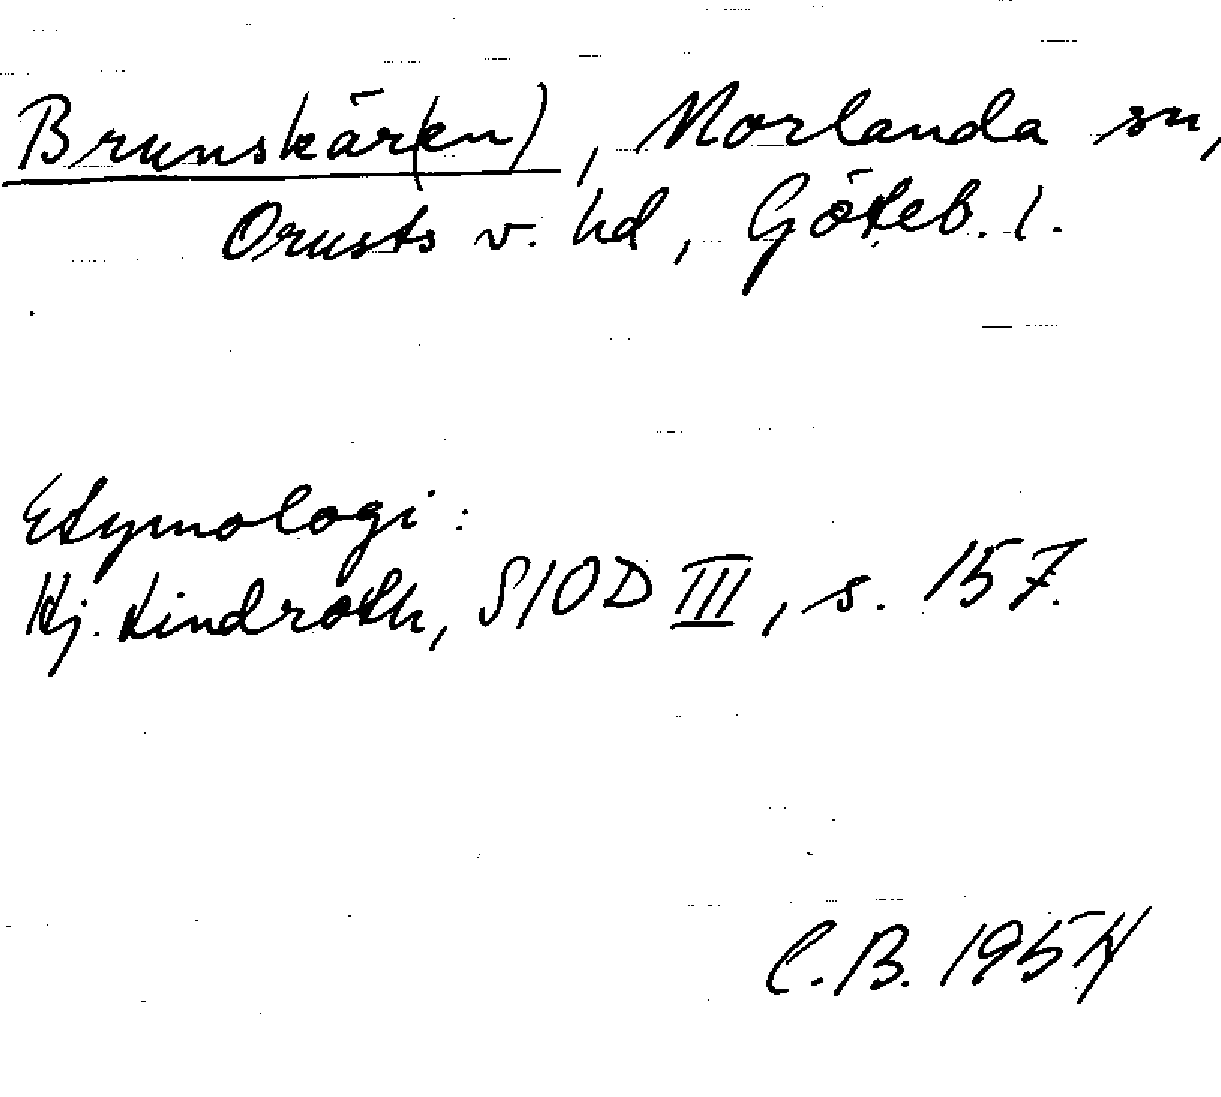 Brunskär(en), Morlanda sn,
Orusts v. hd, Göteb. l.
Etymologi:
Hj. Lindroth, SIOD III, s. 157.
C.B. 1954